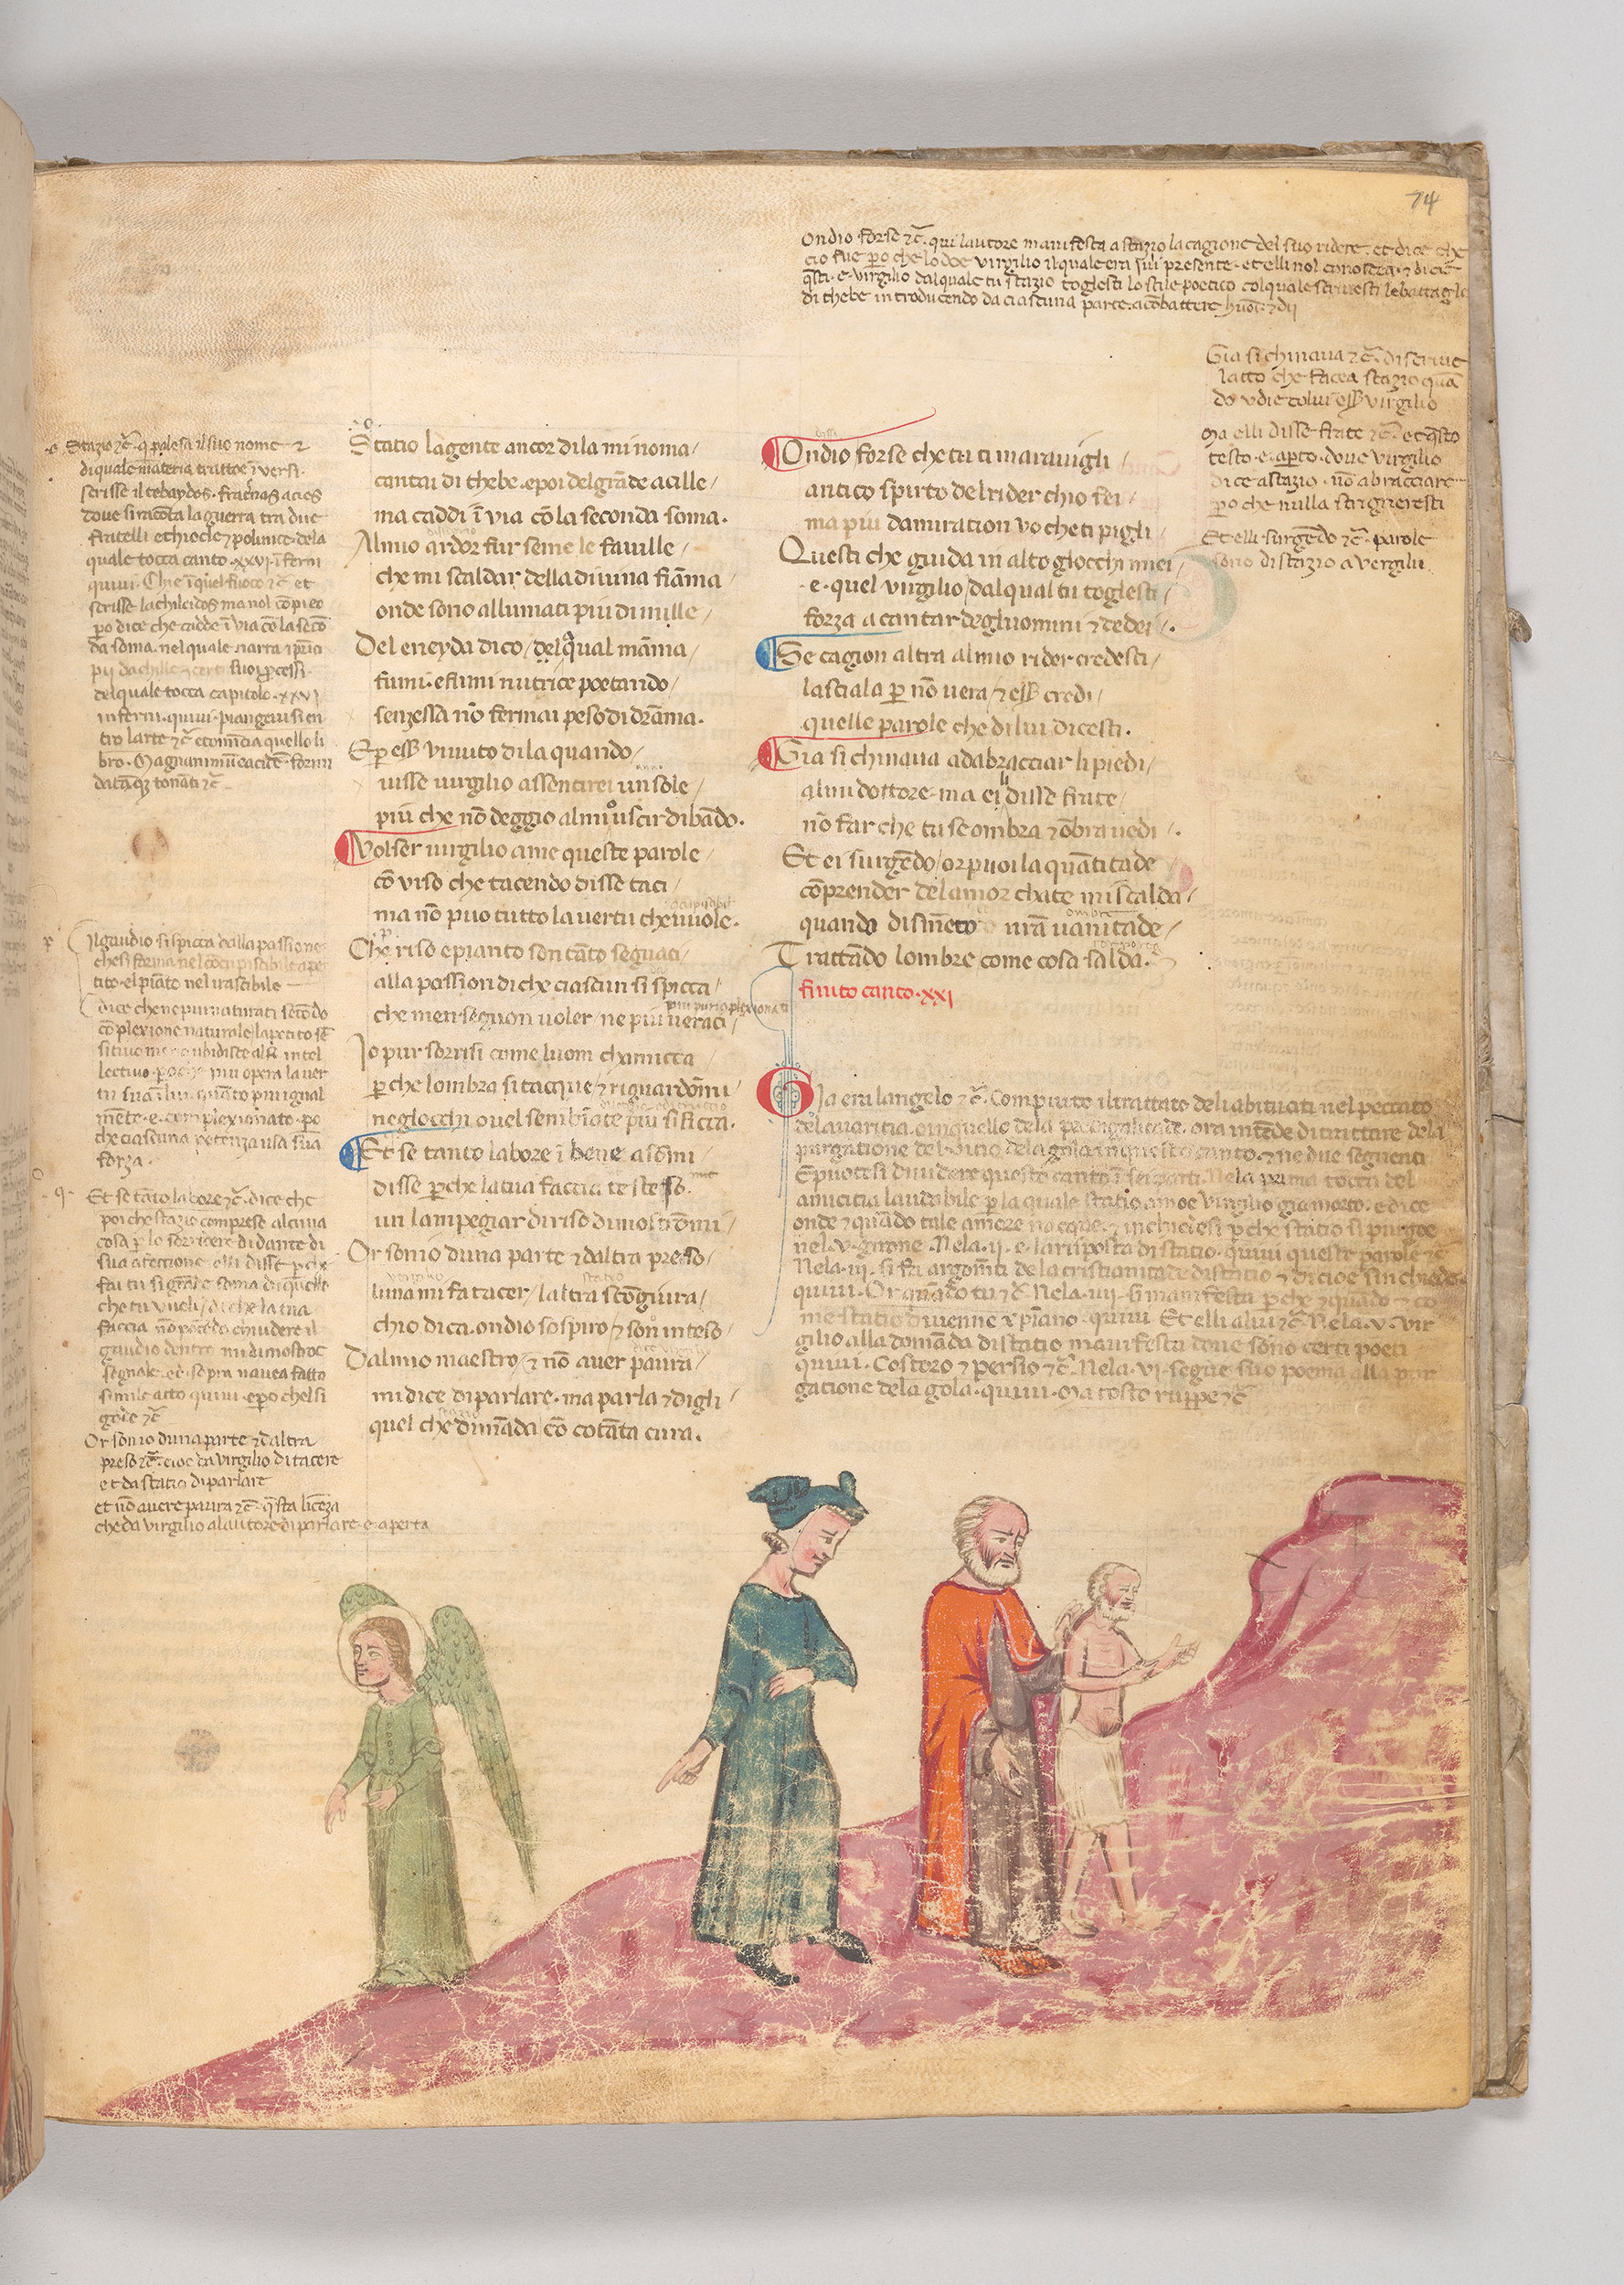 74
Ondio forse ⁊c̃. qui lautore manifesta a stazio la cagione del suo ridere. et dice che
cio fue ꝑo che lodoe virgilio il quale era sui presente. et elli nol conoscea. ⁊ dicie
q̃sti. e. virgilio dal quale tu stazio togliesti lo stile poetico col quale scrivesti le battaglie
di thebe introducendo da ciascuna parte. a cõbattere huoĩ. ⁊ dii
Gia si chinaua ⁊c̃. discriue
latto che facea stazio quã
do vdie colui ess̃ virgilio
Ma elli disse frate ⁊c̃. et q̃sto
testo. e. aꝑto. doue virgilio
dice a stazio. nõ abracciare
ꝑo che nulla strignieresti
Et elli surgẽdo ⁊c̃. parole
sono di stazio a vergilu
.o. Stazio ⁊c̃. q̃ palesa il suo nome ⁊
di quale materia trattoe ĩ versi.
scrisse il tebaydos. fraternas acies
doue si racõta la guerra tra due
fratelli ethiocle ⁊ polinice. de la
quale tocca canto. xxvi. ĩferni
quiui. Chi e ĩ quel fuoco ⁊c̃ et
scrisse lachileidos ma nol cõpieo
ꝑo dice che cadde ĩ via cõ la secõ
da soma. nel quale narra ⁊ prĩci
pii dachille
del quale tocca capitolo. xxvi
inferni. quiui. piangeuisi en
tro larte ⁊c̃ ecomĩcia quello li
bro. Magnanimũ eacidẽ. formi
datãq; tonãti ⁊c̃
Statio la gente ancor di la mi noma/
cantai di thebe. e poi del grãde acille/
ma caddi ĩ via cõ la seconda soma.
Al mio ardor fur seme le fauille/
che mi scaldar della diuina fiãma/
onde sono allumati piu di mille/
Del eneyda dico/ del qual mãma/
fumi. e fumi nutrice poetando/
senzessa nõ fermai peso di drãma.
E ꝑ ess̃ viuuto di la quando/
uisse uirgilio assentirei un sole/
piu che nõ deggio al mio uscir di bãdo.
Volser uirgilio a me queste parole/
cõ viso che tacendo disse taci/
ma nõ puo tutto la uertu che uuole.
Che riso e pianto son tãto seguaci/
alla passion di che ciascun si spicca/
che men seguon uoler/ ne piu ueraci/
Io pur sorrisi come luom chamicca
ꝑ che lombra si tacque/ ⁊ riguardõmi/
neglocchi oue'l sembiãte piu si ficca.
Et se tanto labore ĩ bene asõmi/
disse ꝑche la tua faccia testeso.
un lampegiar di riso dimostrõmi/
Or sonio duna parte ⁊ daltra preso/
luna mi fa tacer/ laltra scõgiura/
chio dica. ondio sospiro/ ⁊ sono inteso/
Dal mio maestro/ ⁊ nõ auer paura/
mi dice di parlare. ma parla ⁊ digli/
quel che dimãda cõ cotãta cura.
Il gaudio si spicca dalla passione
che si forma nel cõcupiscibile ape
tito. el piãto nel irascibile
dice che ne piu naturati secõdo
cõplexione naturale lapetito sẽ
sitiuo
lectiuo. piu opera la uer
tu sua ĩ lui. quãto piu igual
mẽte. e. complexionato. ꝑo
che ciascuna potenza usa sua
forza.
.q. Et se tãto labore ⁊c̃. dice che
poi che stazio comprese alcuna
cosa ꝑ lo sorridere di dante di
sua afectione. elli disse ꝑche
fai tu si grãde soma di quelle
che tu vueli/ di che la tua
faccia nõ potẽdo chiudere il
gaudio dentro mi dimostroe
segnale
simile atto quiui. eꝑo chel si
gode ⁊c̃
Or sonio duna parte ⁊ daltra
preso ⁊c̃. cioe da virgilio di tacere
et da statio di parlare
et nõ avere paura ⁊c̃. q̃sta licẽza
che da virgilio al autore di parlare. e. aperta
Ondio forse che tu ti marauigli/
antico spirto del rider chio fei/
ma piu damiration vo che ti pigli/
Questi che guida in alto glocchi miei/
.e. quel virgilio/ dal qual tu togliesti/
forza a cantar degluomini ⁊ de dei/.
Se cagion altra al mio rider credesti/
lasciala ꝑ nõ uera/ ⁊ ess̃ credi/
quelle parole che di lui dicesti.
Gia si chinaua ad abracciar li piedi/
al mi dottore. ma ei li disse frate/
nõ far che tu se ombra ⁊ õbra uedi/.
Et ei surgẽdo/ or puoi la quãtitade
cõprender del amor cha te mi scalda/
quando dismẽto nr̃a uanitade/
Trattãdo lombre come cosa salda.
finito canto. xxi
Gia era langelo ⁊c̃. Compiuto il trattato deli abituati nel peccato
del auaritia. o in quello dela prodigalitade. ora intẽde di trattare dela
purgatione del vitio dela gola in questo canto. ⁊ ne due seguenti
E puotesi diuidere questo canto ĩ sei parti. Nela prima tocca del
amicitia laudabile ꝑ la quale statio amoe virgilio gia morto. e dice
onde ⁊ quãdo tale amore nacque. ⁊ inchiedesi ꝑ che statio si purgoe
nel. v. girone. Nela. ij. e. la risposta di statio. quiui queste parole ⁊c̃
Nela. iij. si fa argomẽti de la cristianitade di statio
quiui. Or quãdo tu ⁊c̃. Nela. iiij. si manifesta ꝑ che ⁊ quãdo ⁊ co
me statio diuenne xp̃iano. quiui. Et elli a lui ⁊c̃. Nela. v. vir
gilio alla domãda di statio manifesta doue sono certi poeti
quiui. Costoro ⁊ persio ⁊c̃. Nela. vi. segue suo poema alla pur
gatione dela gola. quiui. Ma tosto ruppe ⁊c̃